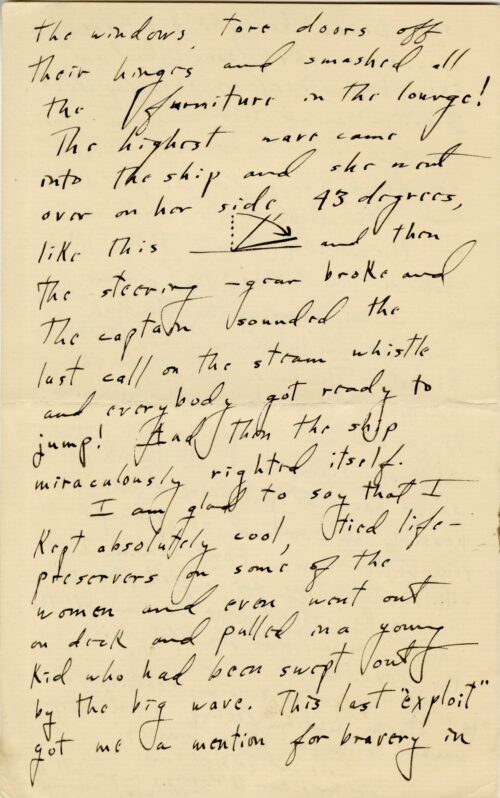 the windows, tore doors off
their hinges and smashed all
the furniture in the lounge!
The highest wave came
into the ship and she went
over on her side 43 degrees,
like this and then
the steering-gear broke and
the captain sounded the
last call on the steam whistle
and everybody got ready to
jump! And then the ship
miraculously righted itself.
I am glad to say that I
kept absolutely cool, tied life-
preservers on some of the
women and even went out
on deck and pulled in a young
kid who had been swept out
by the big wave. This last "exploit"
got me a mention for bravery in